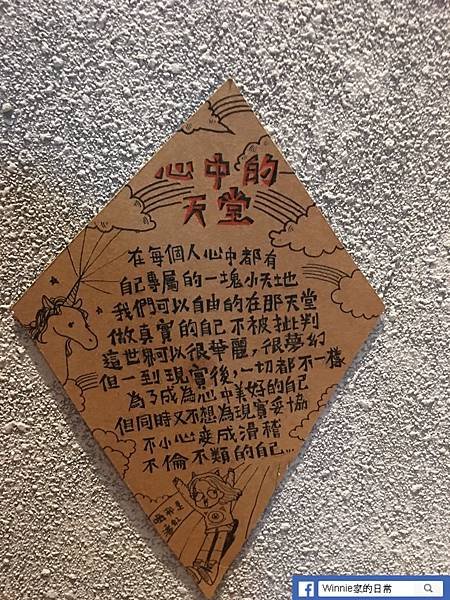 心中的
天堂
在每個人心中都有
自己專屬的一塊小天地
我們可以自由的在那天堂
做真實的自己不被批判
這世界可以很華麗，很夢幻
但一到現實後，一切都不一樣
為了成為心中美好的自己
但同時又不想為現實妥協
不小心變成滑稽
不倫不類的自己...
Winnie家的日常